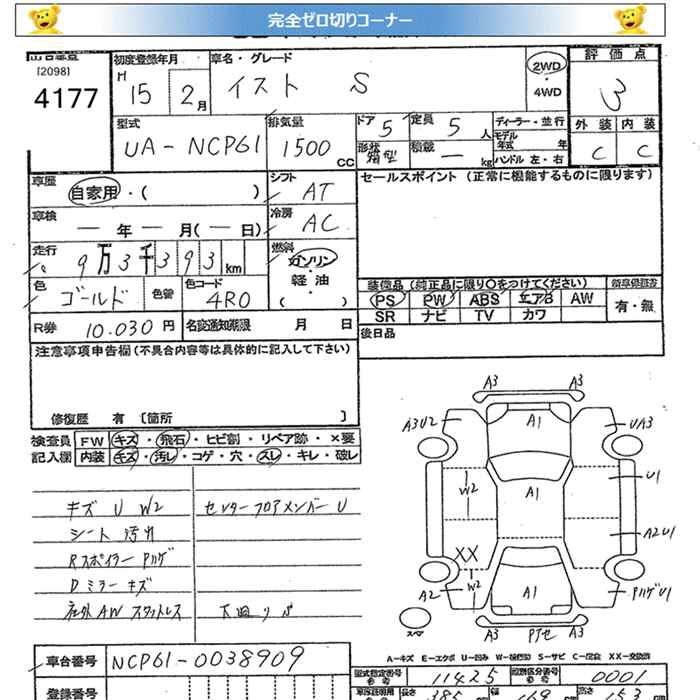 完全ゼロ切りコーナー
[2098]
4177
初度登録年月
H 15 2月
車名・グレード
イスト S
2WD
・
4WD
評価点
3
外装 内装
C C
型式
UA-NCP61
排気量
1500 CC
ドア 5
形状 箱型
定員 5 人
積載 — kg
ディーラー・並行
モデル年式 年
ハンドル 左・右
車歴
自家用・( )
シフト
AT
セールスポイント (正常に機能するものに限ります)
車検
— 年 — 月(— 日)
冷房
AC
走行
9万3千393km
燃料
ガソリン
・
軽油
( )
色
ゴールド
色替
色コード
4R0
装備品 (純正品に限り○をつけてください)
PS PW ABS エアB AW
SR ナビ TV カワ
新車保証書
有・無
R券 10.030 円
名変通知期限 月 日
後日品
注意事項申告欄 (不具合内容等は具体的に記入して下さい)
修復歴 有 〔箇所 〕
検査員 FW キズ・飛石・ヒビ割・リペア跡・×要
記入欄 内装 キズ・汚レ・コゲ・穴・スレ・キレ・破レ
キズ U W2
シート 汚れ
Rスポイラー Pハゲ
Dミラー キズ
社外AW スタットレス
センターフロアメンバー U
A3 A3
A3U2 A1 UA3
W2 A1 U1
A2U1
XX
A2 W2 A1 PハゲU1
スペア
A3 Pアセ A3
A—キズ E—エクボ U—凹み W—補修跡 S—サビ C—腐食 XX—交換済
車台番号 NCP61-0038909
型式指定番号 11425
類別区分番号 0001
登録番号
長さ 385
幅 169
高さ 153